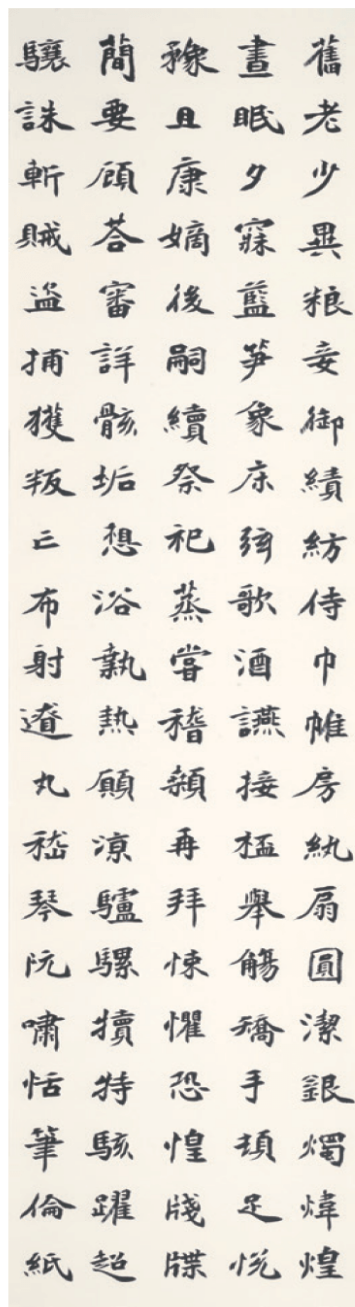 舊老少異粮妾御績紡侍巾帷房紈扇圓潔銀燭煒煌
晝眠夕寐藍笋象床弦歌酒讌接桮舉觴矯手頓足悅
豫且康嫡後嗣續祭祀蒸嘗稽顙再拜悚懼恐惶牋牒
簡要顧荅審詳骸垢想浴執熱願涼驢騾犢特駭躍超
驤誅斬賊盜捕獲叛亡布射遼丸嵇琴阮嘯恬筆倫紙